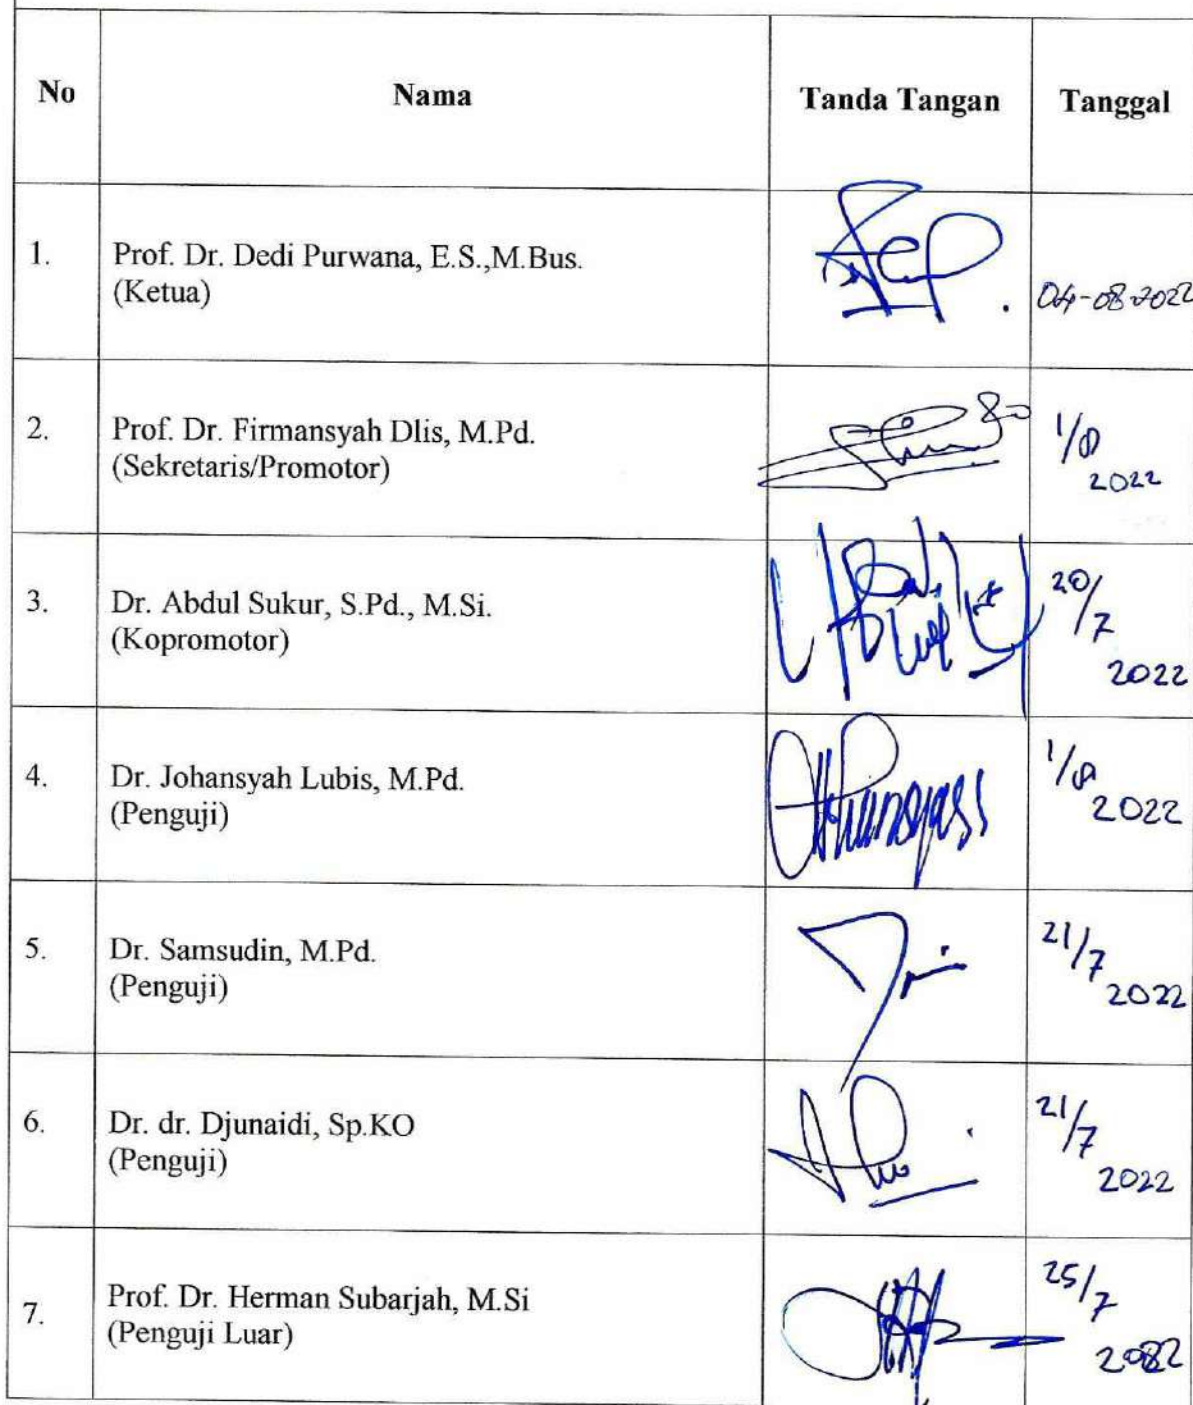 No Nama Tanda Tangan Tanggal
1. Prof. Dr. Dedi Purwana, E.S.,M.Bus.
(Ketua)
04-08-2022
2. Prof. Dr. Firmansyah Dlis, M.Pd.
(Sekretaris/Promotor)
1/8
2022
3. Dr. Abdul Sukur, S.Pd., M.Si.
(Kopromotor)
20/7
2022
4. Dr. Johansyah Lubis, M.Pd.
(Penguji)
1/8
2022
5. Dr. Samsudin, M.Pd.
(Penguji)
21/7
2022
6. Dr. dr. Djunaidi, Sp.KO
(Penguji)
21/7
2022
7. Prof. Dr. Herman Subarjah, M.Si
(Penguji Luar)
25/7
2022